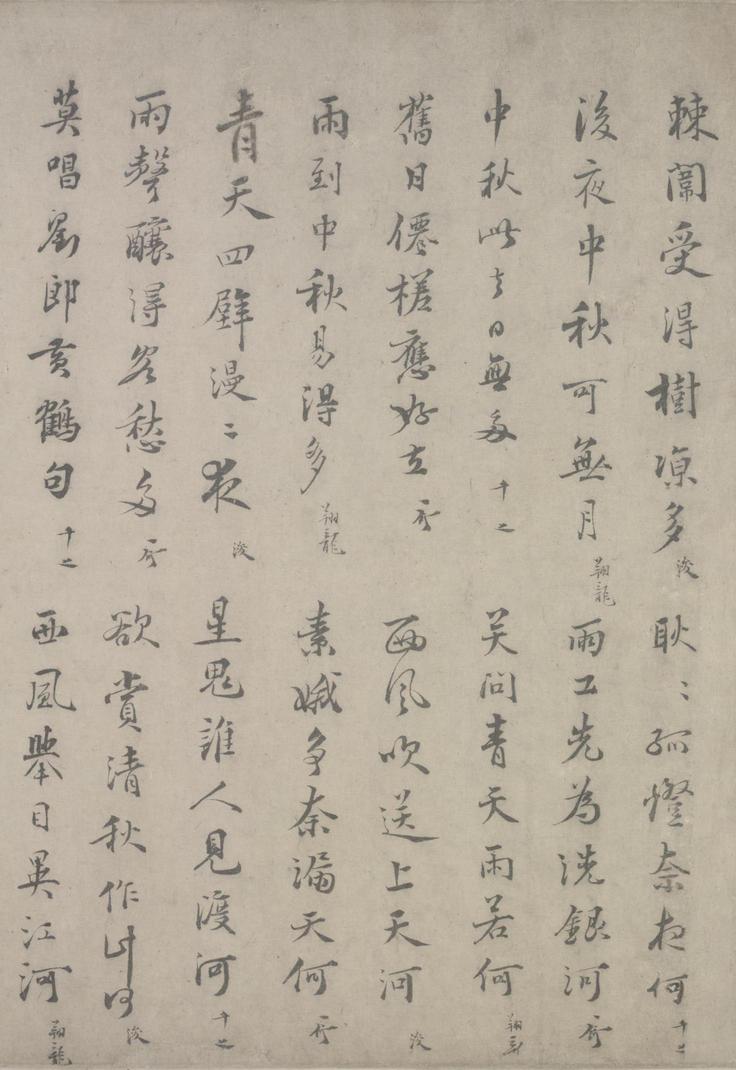 棘闈受得樹凉多 俊 耿〻孤燈奈夜何 十之
後夜中秋可無月 翔龍 雨工先為洗銀河
中秋此去日無多 十之 笑問青天雨若何 翔龍
舊日僊槎應好在 西風吹送上天河 俊
雨到中秋易得多 翔龍 素娥多奈漏天何
青天四壁漫〻夜 俊 星鬼誰人見渡河 十之
雨聲釀得客愁多 欲賞清秋作此何 俊
莫唱劉郎黃鶴句 十之 西風舉目異江河 翔龍